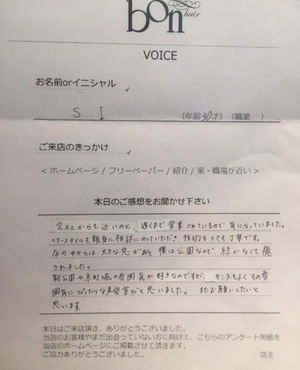 bon
hair
VOICE
お名前orイニシャル
S.I
(年齢30才) (職業 )
ご来店のきっかけ
< ホームページ / フリーペーパー / 紹介 / 家・職場が近い >
本日のご感想をお聞かせ下さい
会社からも近いのと、遅くまで営業されているので気になっていました。
ヘアースタイルも親身に相談にのっていただき 技術もとても丁寧です。
店の中からは大きな窓があり 僕は公園なので 緑がみえて癒
されました。
靭公園や京町堀の雰囲気が好きなのですが、センスもよくその雰
囲気にぴったりな美容室だと思いました。またお願いしたいと
思います
本日はご来店頂き、ありがとうございました。
当店のお客様やまだ出会っていない方に向けて、こちらのアンケート用紙を
当店のホームページにご掲載させて頂きます。
ご協力ありがとうございました。 店主